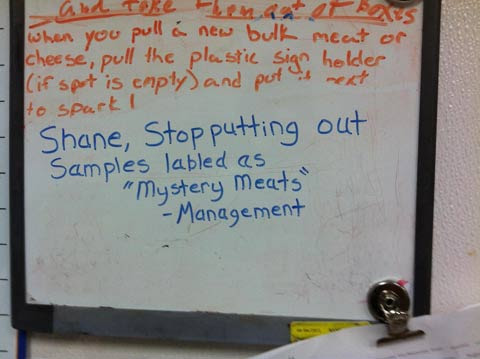 and take them out of boxes
when you pull a new bulk meat or
cheese, pull the plastic sign holder
(if spot is empty) and put it next
to spark!
Shane, Stop putting out
Samples labled as
"Mystery Meats"
-Management